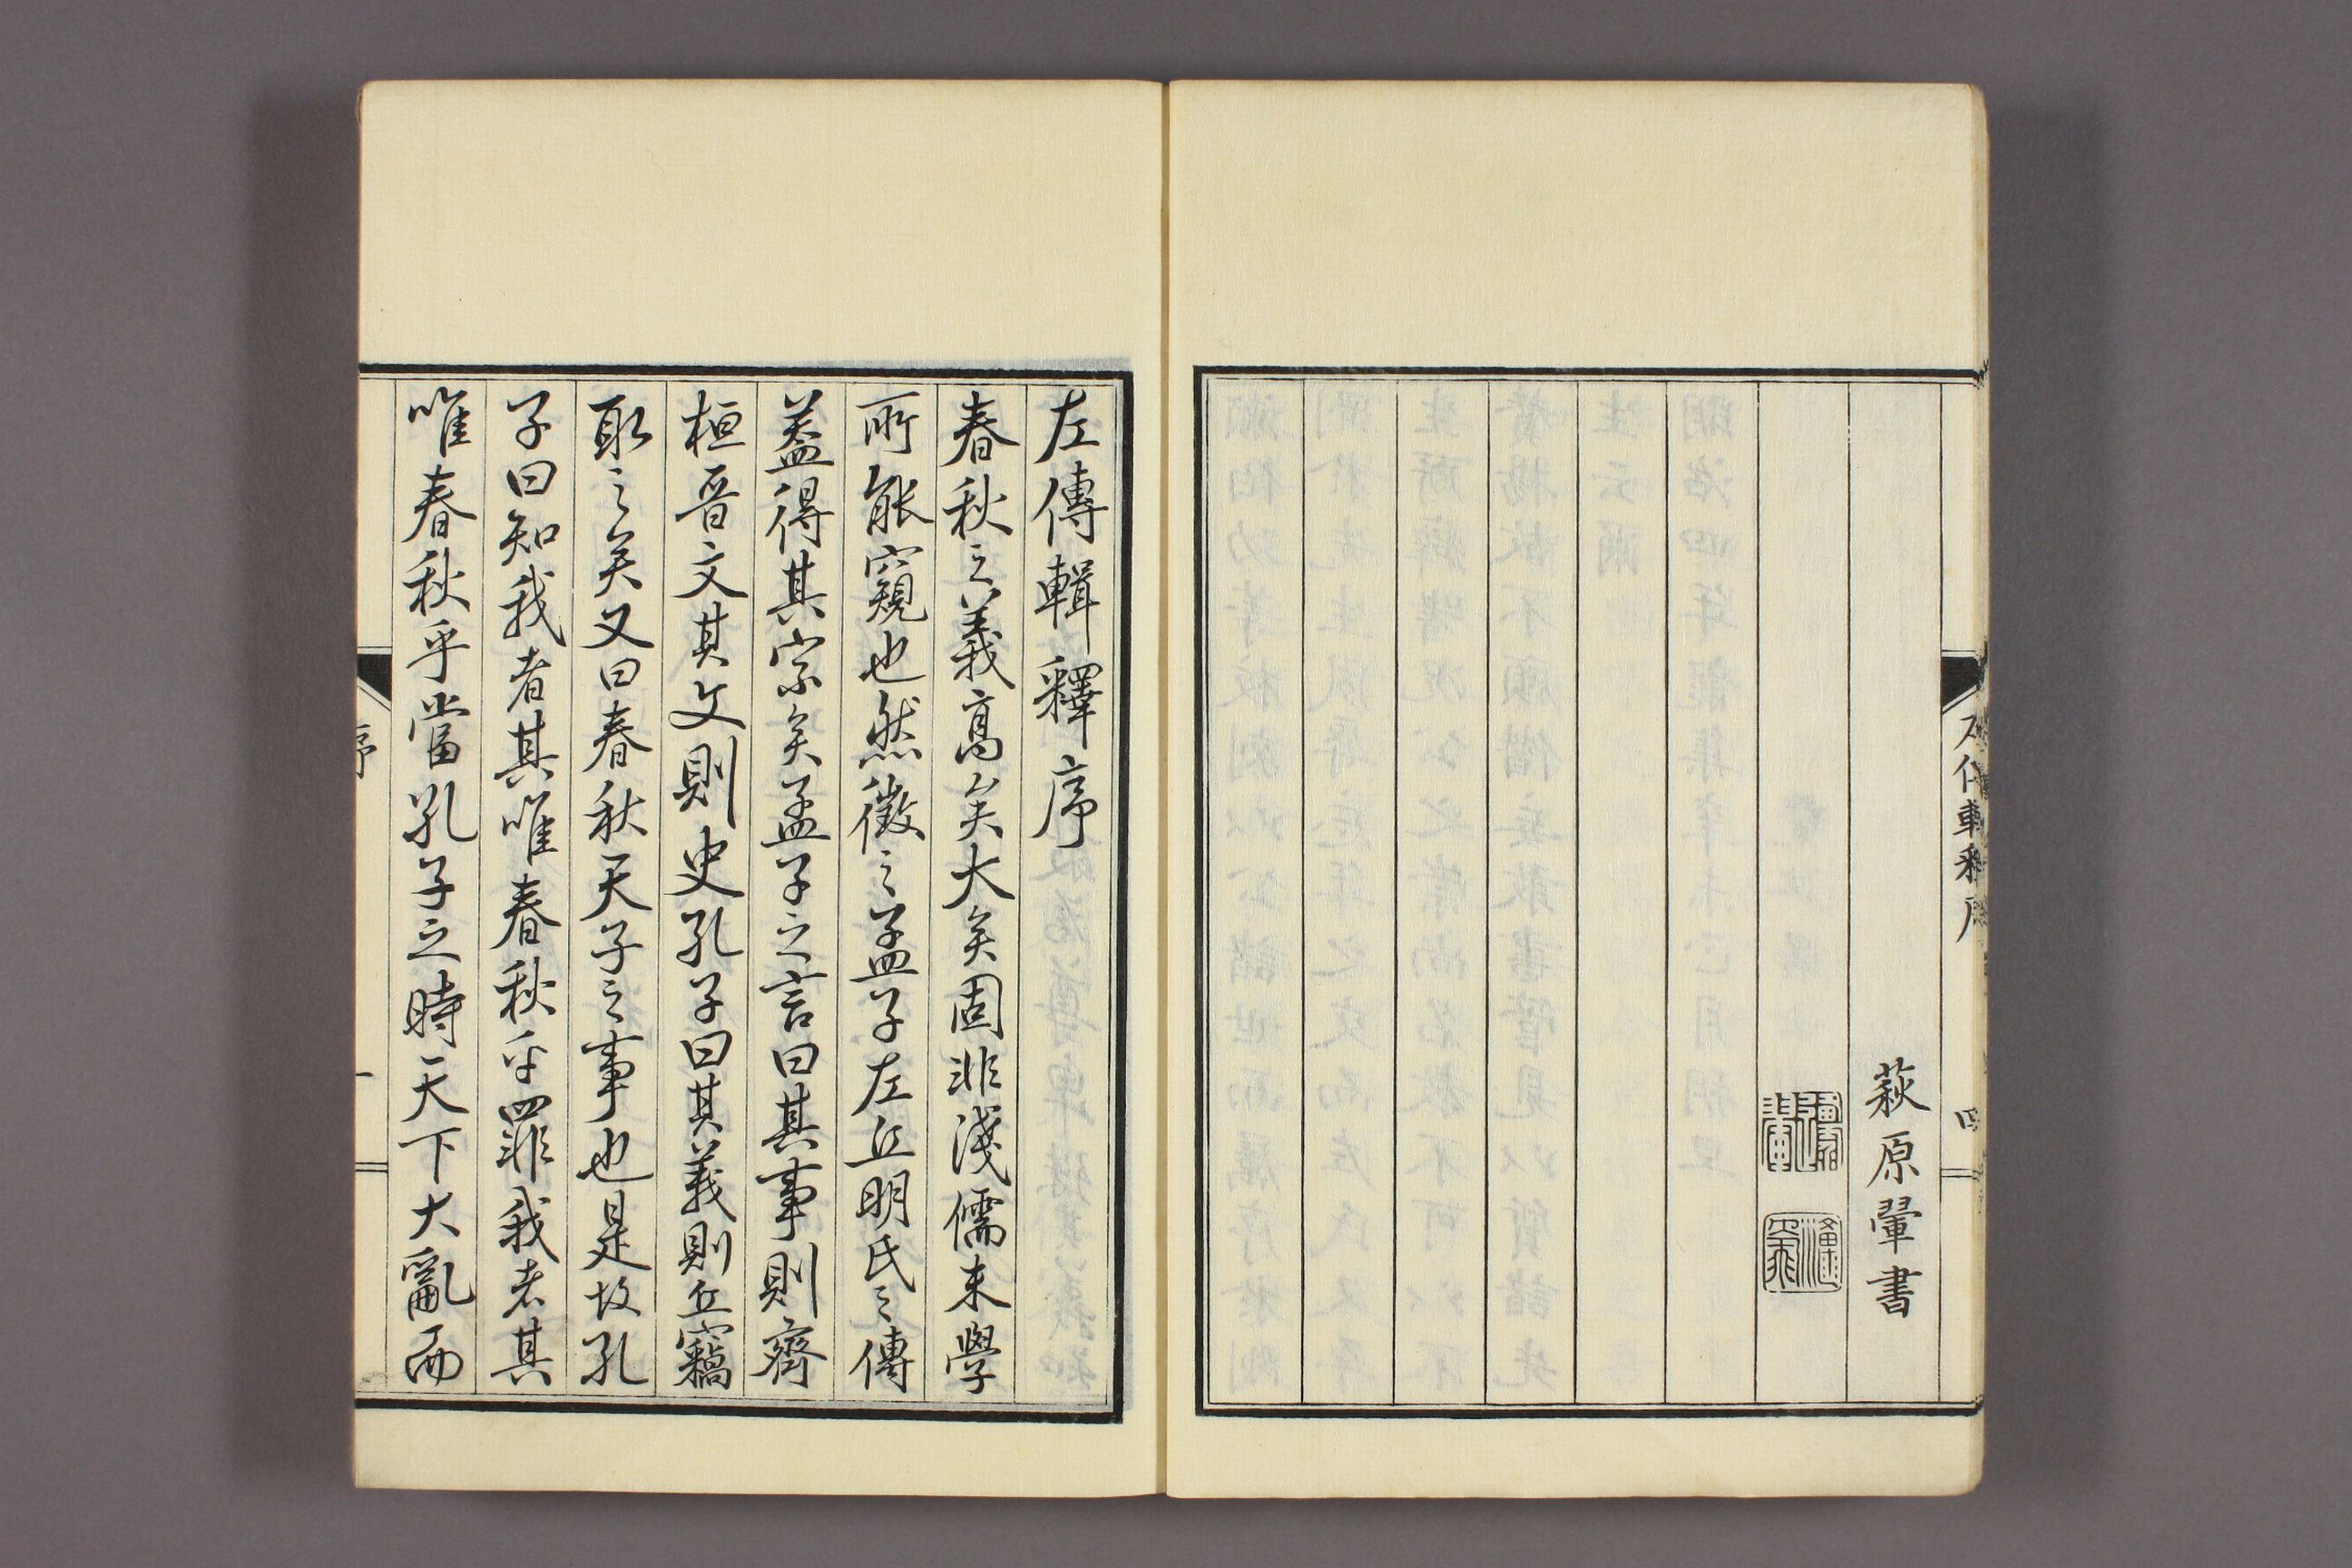 萩原翬書
四
左傳輯釋序
春秋之義高矣大矣固非淺儒末學
所能窺也然徵之孟子左丘明氏之傳
葢得其宗矣孟子之言曰其事則齊
桓晉文其文則史孔子曰其義則丘竊
取之矣又曰春秋天子之事也是故孔
子曰知我者其唯春秋乎罪我者其
唯春秋乎當孔子之時天下大亂而
序
一